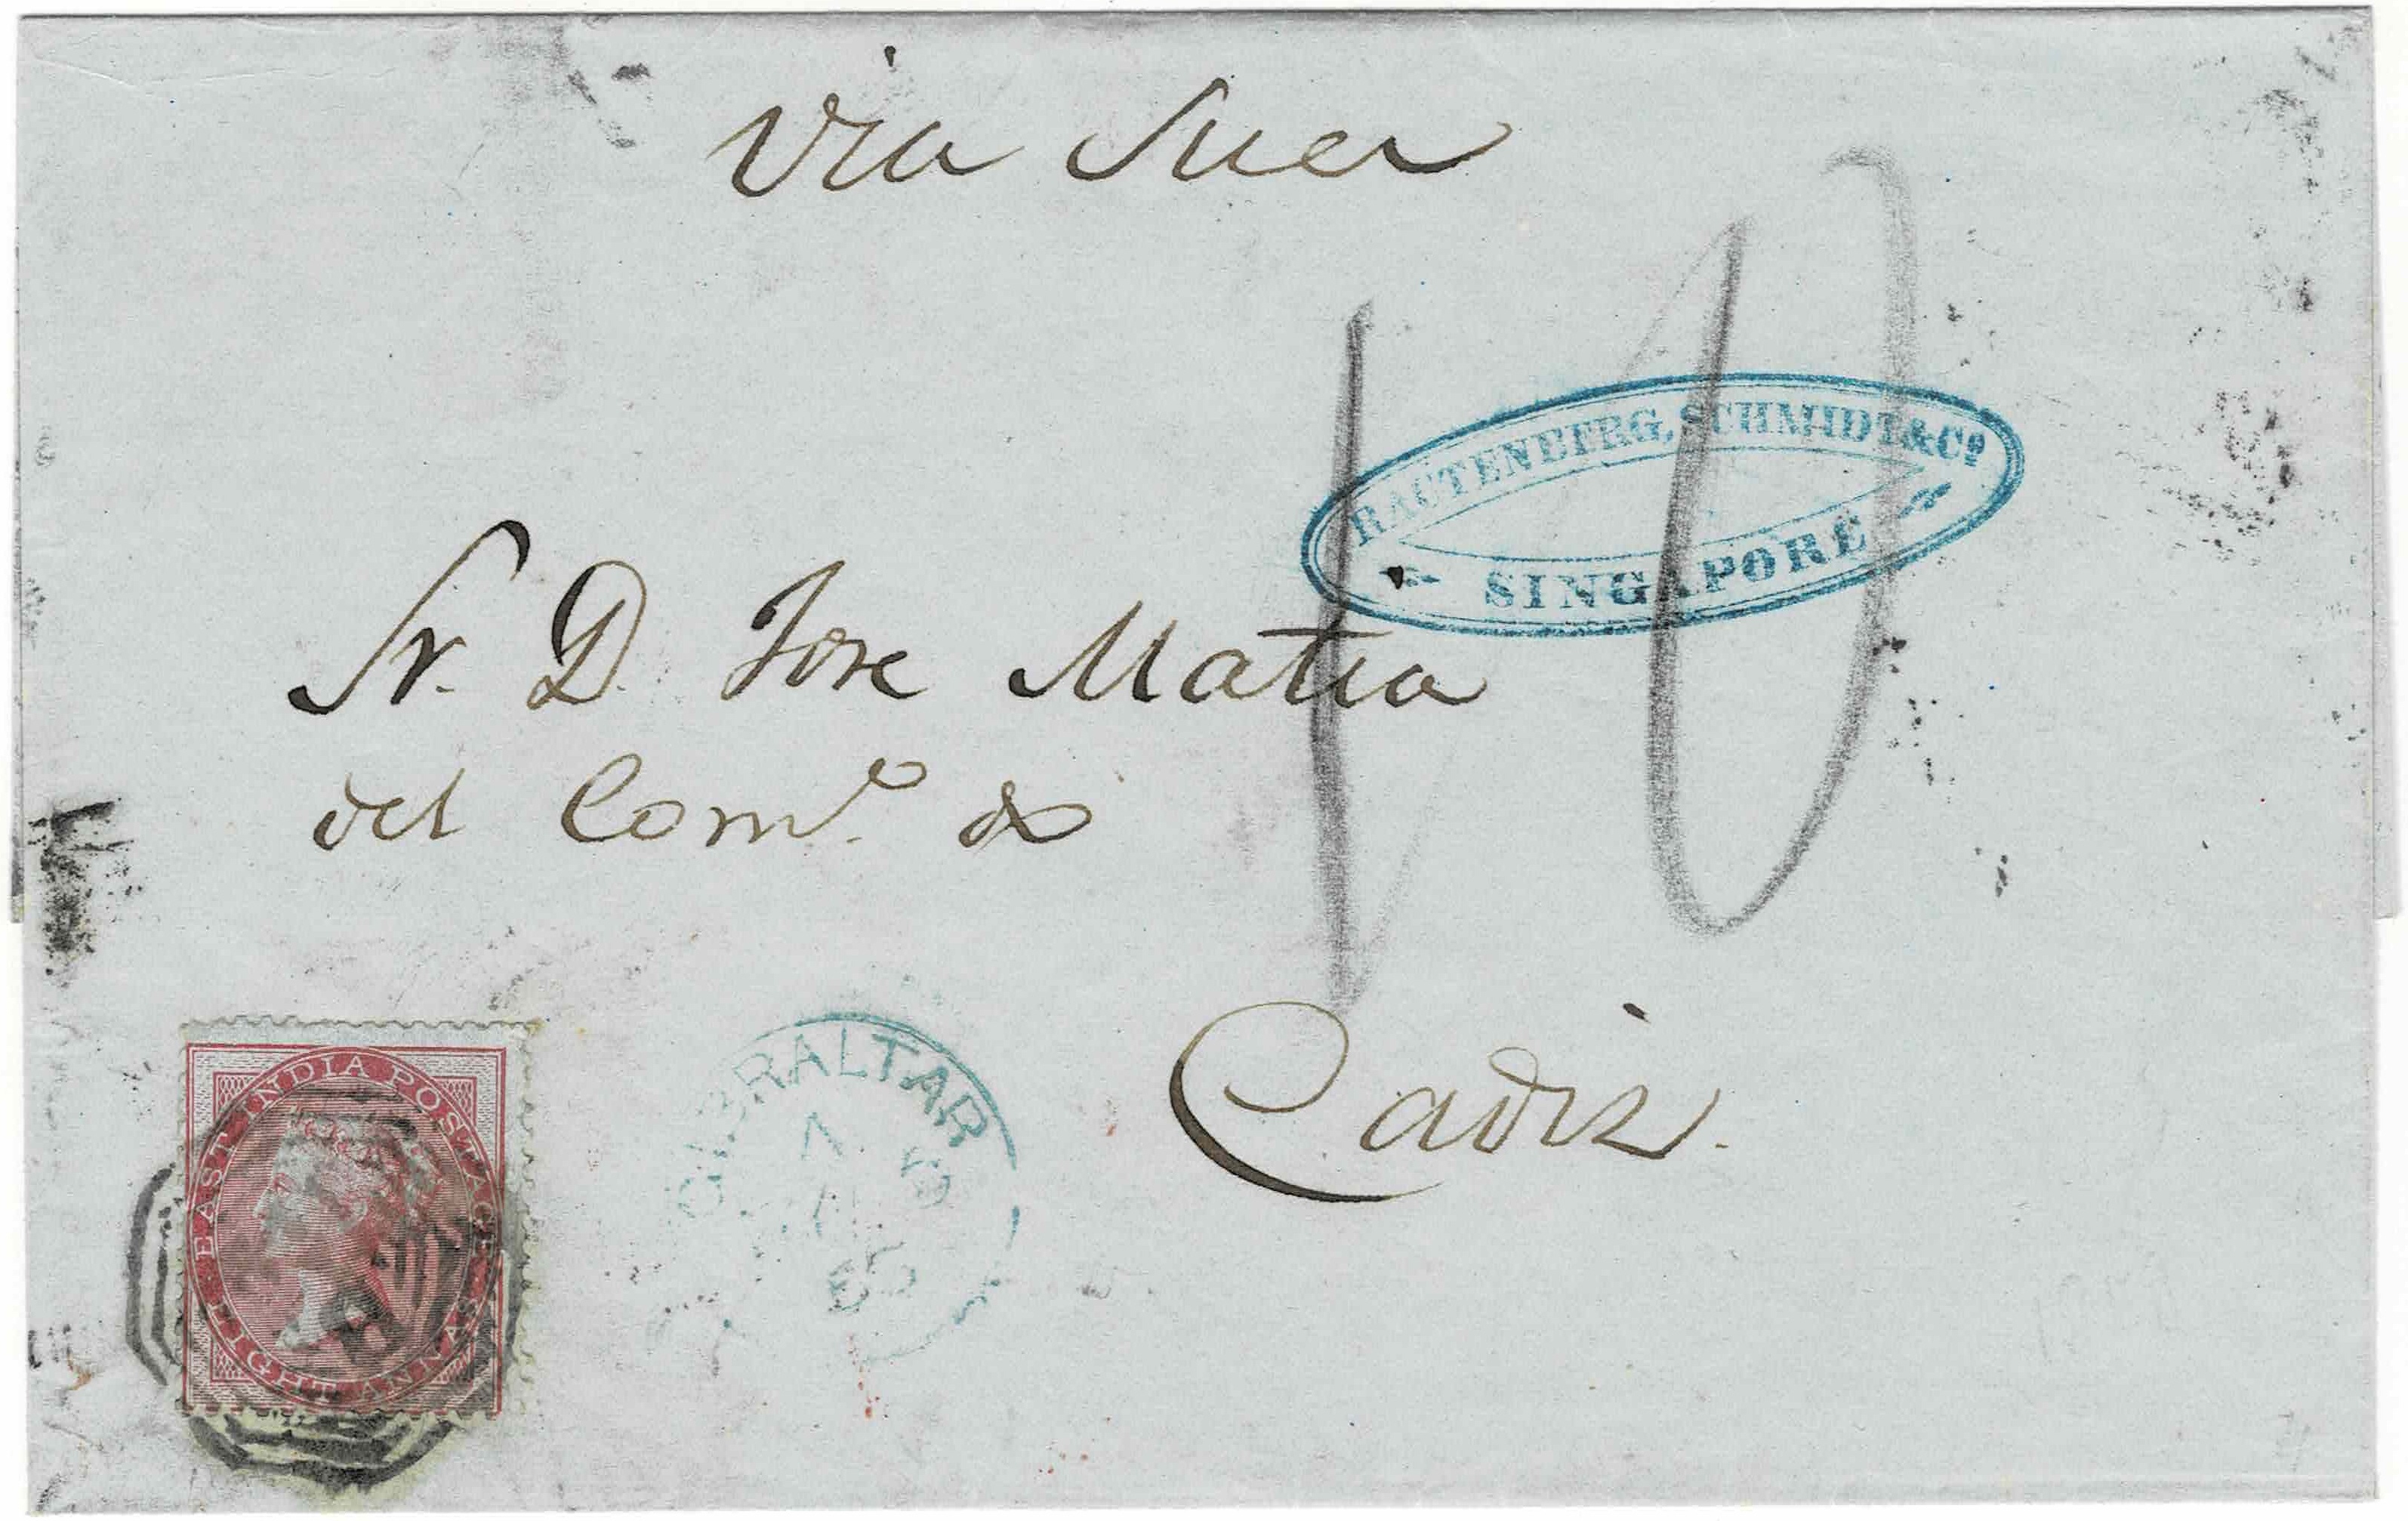 via Suez
RAUTENBERG, SCHMIDT & Cº
SINGAPORE
10
Sr. D. Jose Matia
del Comº. &
Cadiz.
GIBRALTAR
A
65
EAST INDIA POSTAGE
EIGHT ANNAS
B